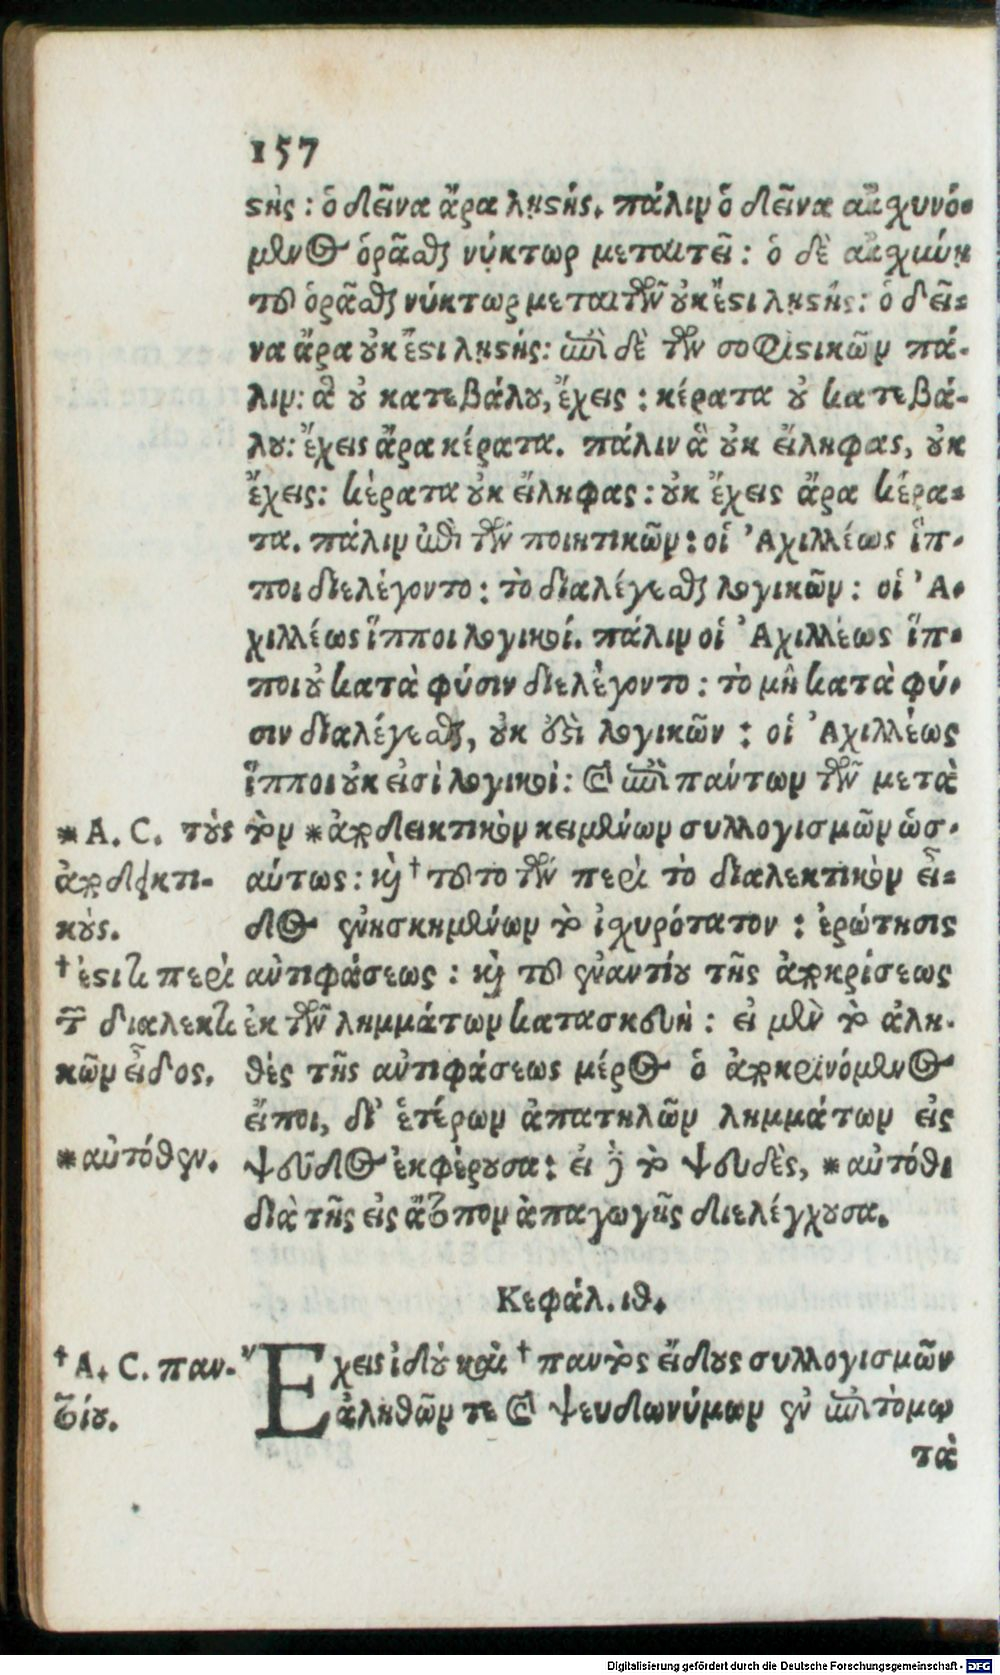 157
στὴς: ὁ δεῖνα ἄρα λῃστής. πάλιν ὁ δεῖνα αἰσχυνό-
μενος ὁρᾶσθαι νύκτωρ μεταιτεῖ: ὁ δὲ
τοῦ ὁρᾶσθαι νύκτωρ μεταιτῶν οὐκ ἔστι λῃστής: ὁ δεῖ-
να ἄρα οὐκ ἔστι λῃστής: ἐπὶ δὲ τῶν σοφιστικῶν πά-
λιν: ἃ οὐ κατεβάλου, ἔχεις: κέρατα οὐ κατεβά-
λου: ἔχεις ἄρα κέρατα. πάλιν ἃ οὐκ εἴληφας, οὐκ
ἔχεις: κὲρατα οὐκ εἴληφας: οὐκ ἔχεις ἄρα κέρα-
τα. πάλιν ἐπὶ τῶν ποιητικῶν: οἱ Ἀχιλλέως ἵπ-
ποι διελέγοντο: τὸ διαλέγεσθαι λογικῶν: οἱ Ἀ-
χιλλέως ἵπποι λογικοί. πάλιν οἱ Ἀχιλλέως ἵπ-
ποι οὐ κατὰ φύσιν διελέγοντο: τὸ μὴ κατὰ φύ-
σιν διαλέγεσθαι, οὐκ ἔστι λογικῶν: οἱ Ἀχιλλέως
ἵπποι οὐκ εἰσὶ λογικοί: καὶ ἐπὶ πάντων τῶν μετὰ
τὸν *ἀποδεικτικὸν κειμένων συλλογισμῶν ὡσ-
αύτως: καὶ †τοῦτο τῶν περὶ τὸ διαλεκτικὸν εἶ-
δος ἐνησκημένων τὸ ἰσχυρότατον: ἐρώτησις
ἀντιφάσεως: καὶ τοῦ ἐναντίου τῆς ἀποκρίσεως
ἐκ τῶν λημμάτων κατασκευή: εἰ μὲν τὸ ἀλη-
θὲς τῆς ἀντιφάσεως μέρος ὁ ἀποκρινόμενος
εἴποι, δι' ἑτέρων ἀπατηλῶν λημμάτων εἰς
ψεῦδος ἐκφέρουσα: εἰ δὲ τὸ ψευδὲς, *αὐτόθι
διὰ τῆς εἰς ἄτοπον ἀπαγωγῆς διελέγχουσα.
Κεφάλ. ιθ.
Ἔχεις ἰδοὺ καὶ †παντὸς εἴδους συλλογισμῶν
ἀληθῶν τε καὶ ψευδωνύμων ἐν ἐπιτόμῳ
τὰ
*A. C. τοὺς
ἀποδεικτι-
κοὺς.
†ἐστι περὶ
τ διαλεκτι
κῶν εἶδος.
*αὐτόθεν.
†A. C. παν-
τοίου.
Digitalisierung gefördert durch die Deutsche Forschungsgemeinschaft - DFG